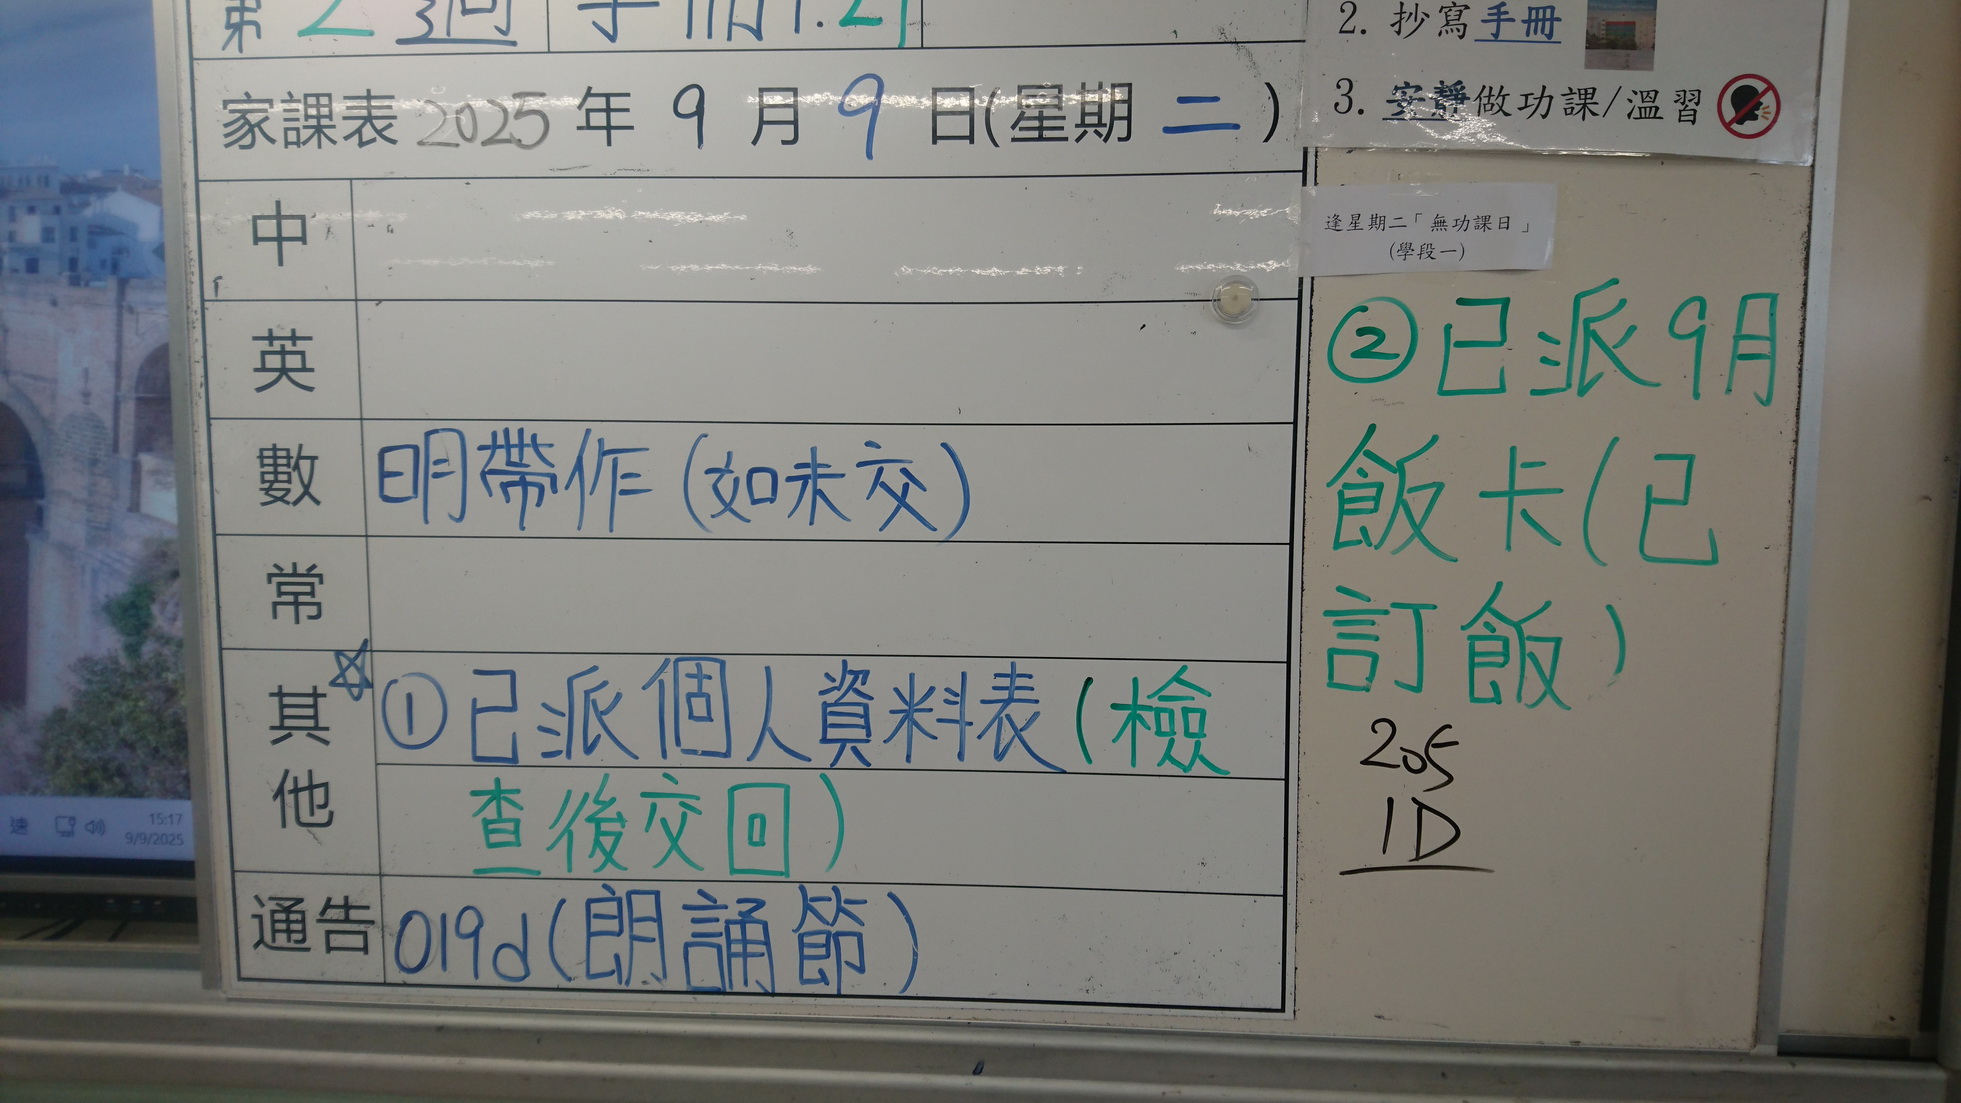 第2週 手冊P.21
家課表 2025 年 9 月 9 日(星期 二 )
中
英
數 明帶作(如未交)
常
其他 ☆ ①已派個人資料表(檢
查後交回)
通告 019d(朗誦節)
2. 抄寫手冊
3. 安靜做功課/溫習
逢星期二「無功課日」
(學段一)
②已派9月
飯卡(已
訂飯)
205
1D
速
15:17
9/9/2025